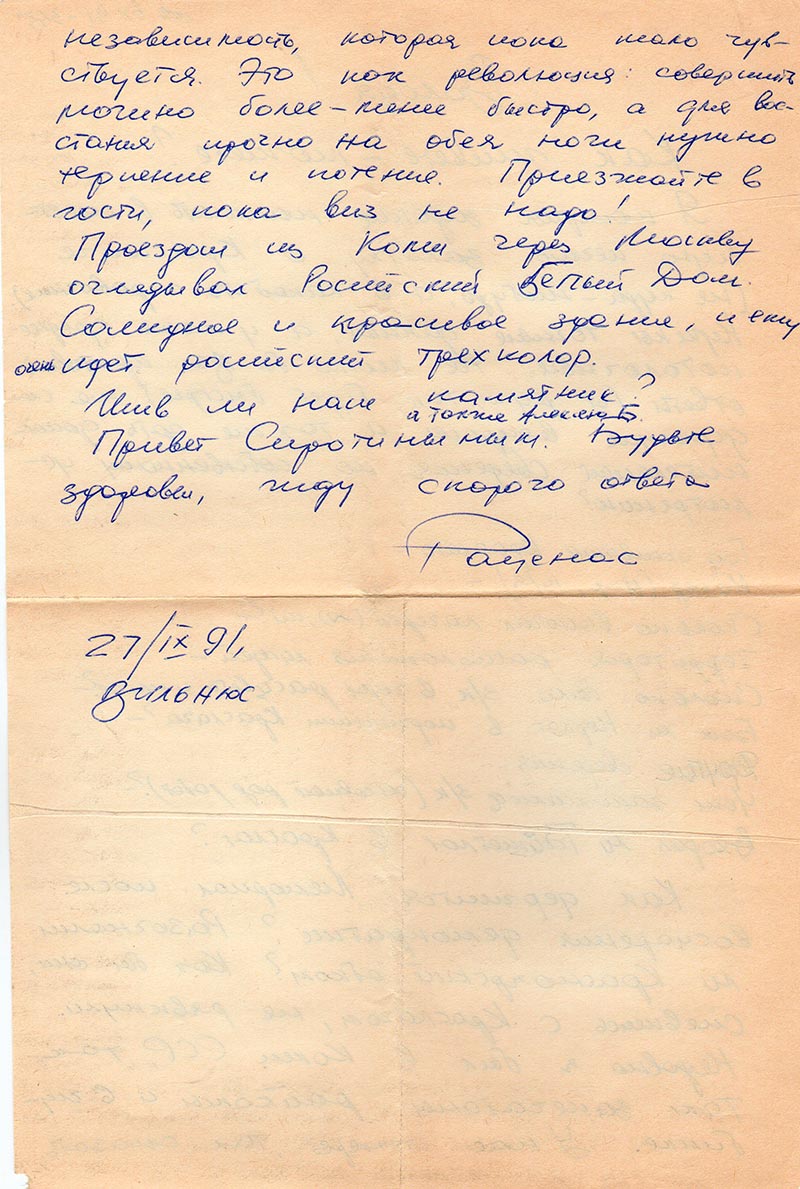 независимость, которая пока мало чув-
ствуется. Это как революция: совершить
можно более-менее быстро, а для вос-
стания прочно на обея ноги нужно
терпение и потение. Приезжайте в
гости, пока виз не надо!
Проездом из Коми через Москву
оглядывал Росийский Белый Дом.
Солидное и красивое здание, и ему
очень идет росийский трехколор.
Жив ли наш памятник?
а также Алекс
Привет Сиротиным. Будьте
здоровы, жду скорого ответа
Раценас
27/IX 91,
Вильнюс